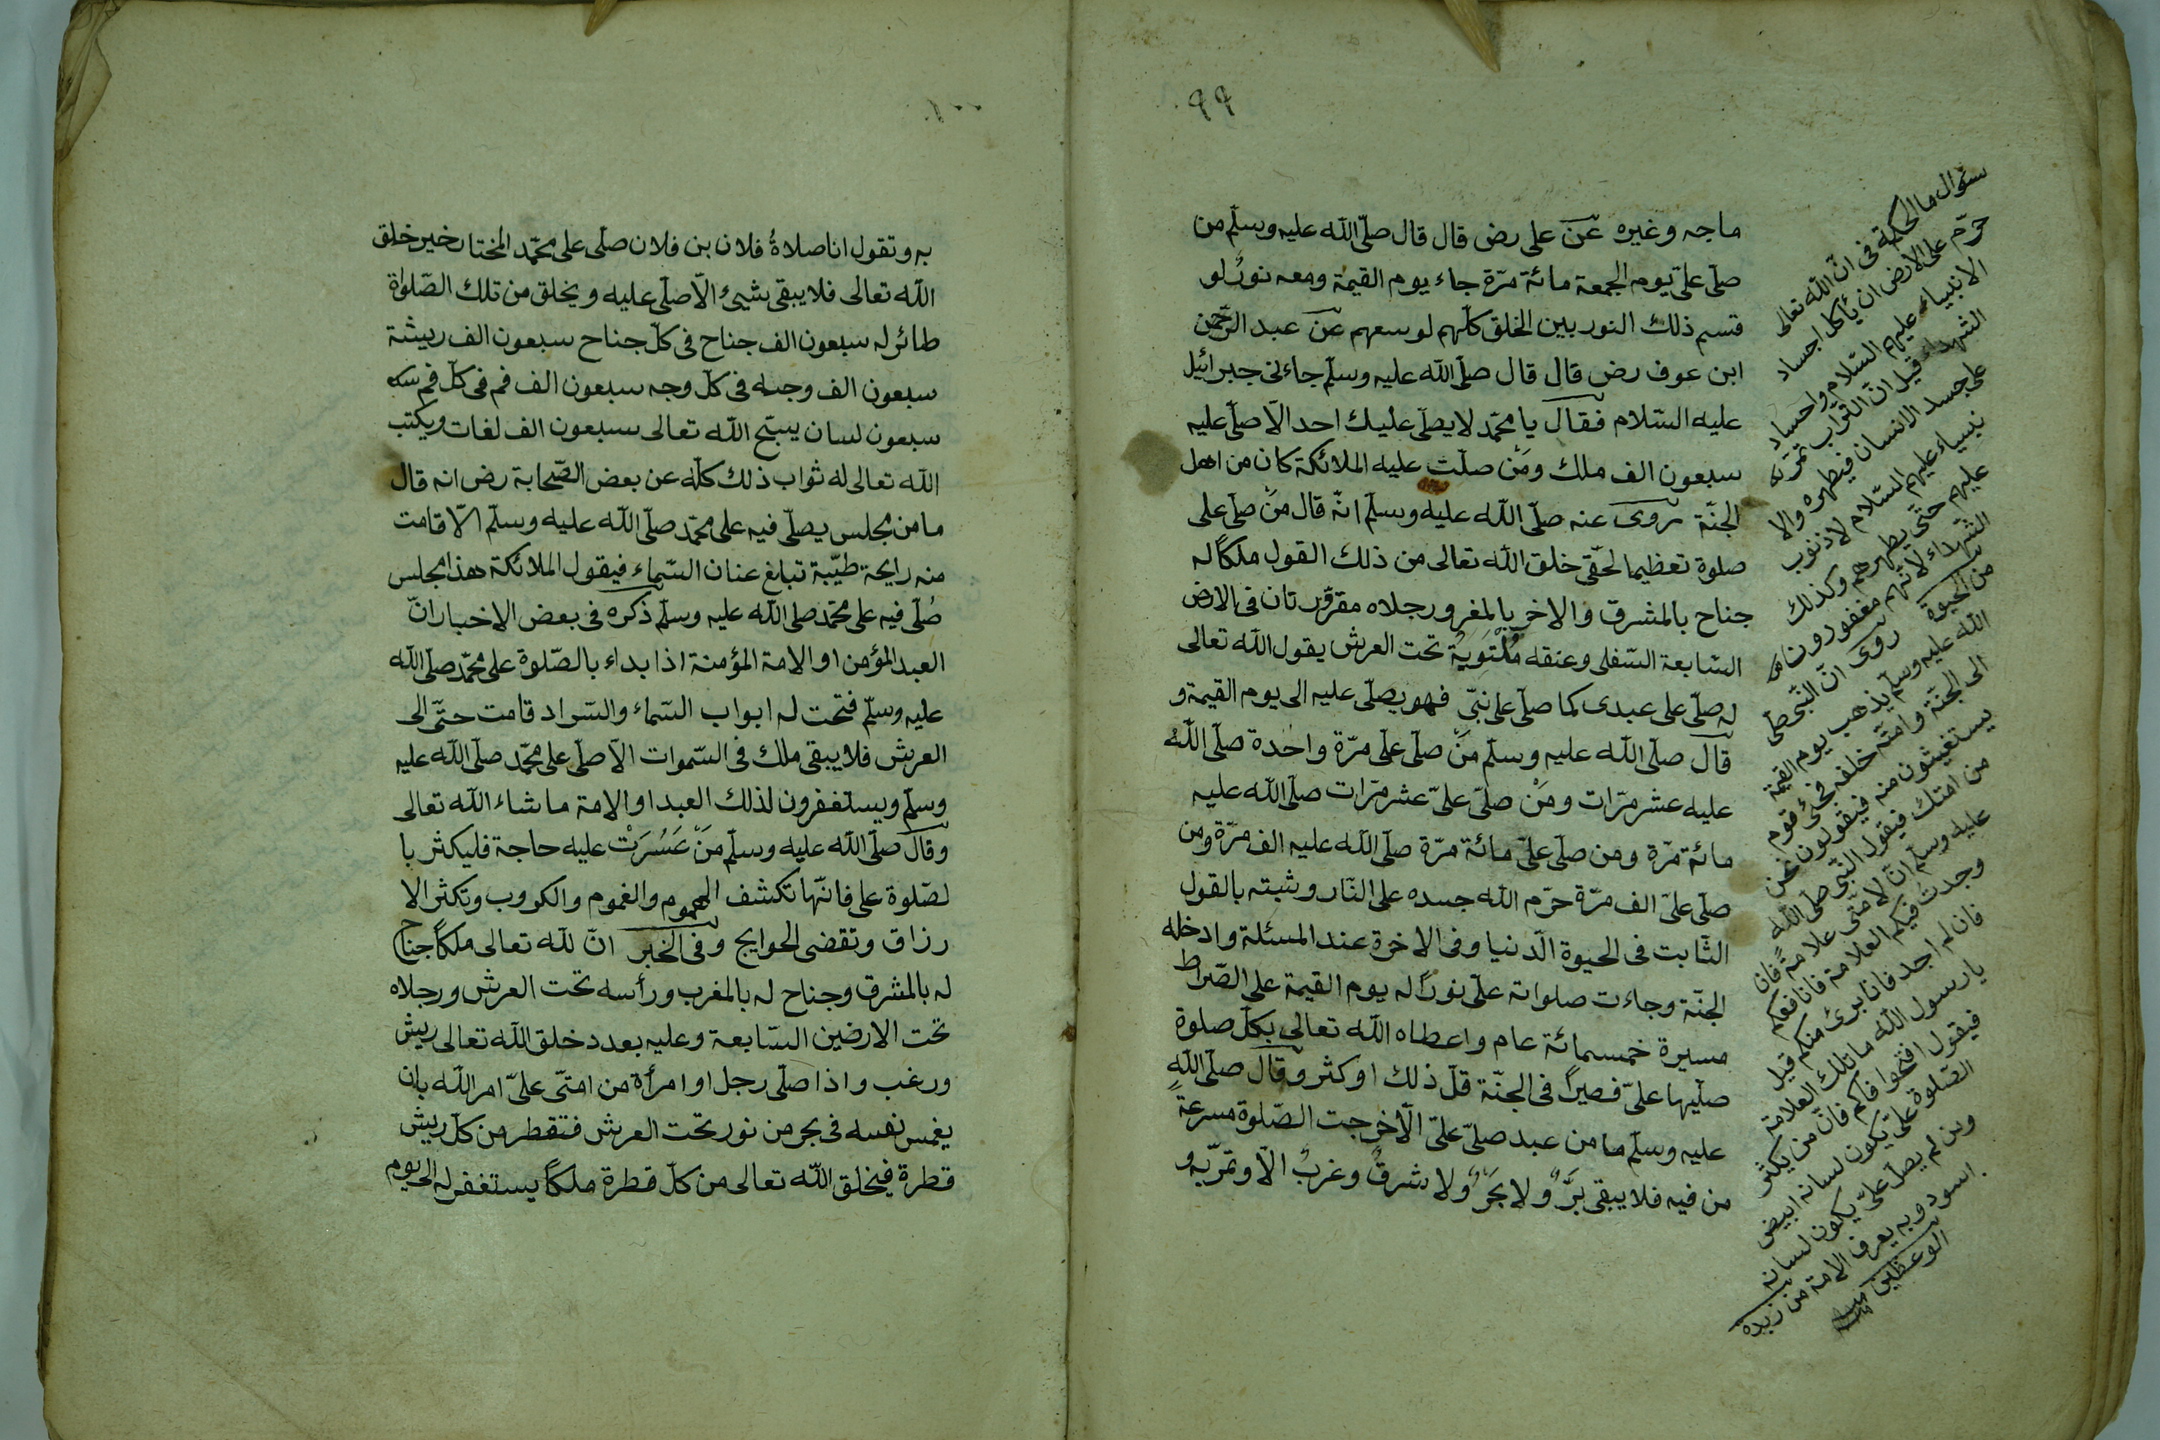 ٩٩
ماجه وغيره عن على رض قال قال صلّى الله عليه وسلّم من
صلّى علىّ يوم الجمعة مائة مرّة جاء يوم القيمة ومعه نورٌ لو
قسم ذلك النور بين الخلق كلّهم لوسعهم عن عبد الرّحمن
ابن عوف رض قال قال صلّى الله عليه وسلّم جاءنى جبرائيل
عليه السّلام فقال يا محمّد لا يصلّى عليك احد الّا صلّى عليه
سبعون الف ملك ومَنْ صلّت عليه الملائكة كان من اهل
الجنّة روى عنه صلّى الله عليه وسلّم انّه قال مَنْ صلّى على
صلوة تعظيما لحقّى خلق الله تعالى من ذلك القول ملكاً له
جناح بالمشرق والاخر بالمغر ورجلاه مقرورتان فى الارض
السّابعة السّفلى وعنقه مُلْتَوِيَةٌ تحت العرش يقول الله تعالى
له صلّى على عبدى كما صلّى على نبىّ فهو يصلّى عليه الى يوم القيمة و
قال صلّى الله عليه وسلّم مَنْ صلّى علىّ مرّة واحدة صلّى الله
عليه عشر مرّات ومَنْ صلّى علىّ عشر مرّات صلّى الله عليه
مائة مرّة ومن صلّى علىّ مائة مرّة صلّى الله عليه الف مرّة ومن
صلّى علىّ الف مرّة حرّم الله جسده على النّار وثبته بالقول
الثّابت فى الحيوة الدّنيا وفى الاخرة عند المسئلة وادخله
الجنّة وجاءت صلواته علىّ نوراً له يوم القيمة على الصّراط
مسيرة خمسمائة عام واعطاه الله تعالى بكلّ صلوة
صلّيها علىّ قصيراً فى الجنّة قلّ ذلك اوكثر وقال صلّى الله
عليه وسلّم ما من عبد صلّى علىّ الّا خرجت الصّلوة مسرعةً
من فيه فلا يبقى بَرٌّ ولا بحَرٌ ولا شرقٌ وغربٌ الّا وتمرّ به و
سؤال ما الحكمة فى انّ الله تعالى
حرّم على الارض ان يأكل اجساد
الانبياء عليهم السّلام واجساد
الشهداء قيل انّ التّراب تمرّ
على جسد الانسان فيطهره والا
نبياء عليهم السّلام لا ذنوب
عليهم حتّى يطهرهم وكذلك
الشهداء لانّهم مغفورون
من الحيوة روى انّ النّبى صلّى
الله عليه وسلّم يذهب يوم القيمة
الى الجنّة وامّته خلفه فيجئ قوم
يستغيثون منه فيقولون نحن
من امتك فيقول النّبى صلّى الله
عليه وسلّم انّ لامّتى علامةً فان
وجدتُ فيكم العلامة فانا
فان لم اجد فانا برئ منكم قيل
يا رسول الله ما تلك العلامة
فيقول افتحوا فاكم فانّ من يكثر
الصّلوة علىّ يكون لسانه ابيض
ومن لم يصلّ علىّ يكون لسانه
اسود وبه يعرف الامة من زبدة
الوعظين
١٠٠
به وتقول انا صلاةُ فلان بن فلان صلّى على محمّد المختار خير خلق
الله تعالى فلا يبقى شيئ الّا صلّى عليه ويخلق من تلك الصّلوٰة
طائر له سبعون الف جناح فى كلّ جناح سبعون الف ريشة
سبعون الف وجه فى كلّ وجه سبعون الف فم فى كلّ فم
سبعون لسان يسبّح الله تعالى سبعون الف لغات ويكتب
الله تعالى له ثواب ذلك كلّه عن بعض الصّحابة رض انه قال
ما من مجلس يصلّى فيه على محمّد صلّى الله عليه وسلّم الّا قامت
منه رايحة طيّبة تبلغ عنان السّماء فيقول الملائكة هذا مجلس
صُلّى فيه على محمّد صلى الله عليه وسلّم ذكره فى بعض الاخبار انّ
العبد المؤمن او الامة المؤمنة اذا بداء بالصّلوة على محمّد صلّى الله
عليه وسلّم فتحت له ابواب السّماء والسّراد قامت حتّى الى
العرش فلا يبقى ملك فى السّموات الّا صلّى على محمّد صلّى الله عليه
وسلّم ويستغفرون لذلك العبد او الامة ما شاء الله تعالى
وقال صلّى الله عليه وسلّم مَنْ عَسُرَتْ عليه حاجة فليكثر با
لصّلوة على فانّها تكشف الهموم والغموم والكروب وتكثر الا
رزاق وتقضى الحوايج وفى الخبر انّ لله تعالى ملكاً جناح
له بالمشرق وجناح له بالمغرب ورأسه تحت العرش ورجلاه
تحت الارضين السّابعة وعليه بعدد خلق الله تعالى ريش
ورغب واذا صلّى رجل او امرأة من امتى علىّ امر الله بان
يغمس نفسه فى بحر من نور تحت العرش فتقطر من كلّ ريش
قطرة فيخلق الله تعالى من كلّ قطرة ملكاً يستغفر له الى يوم